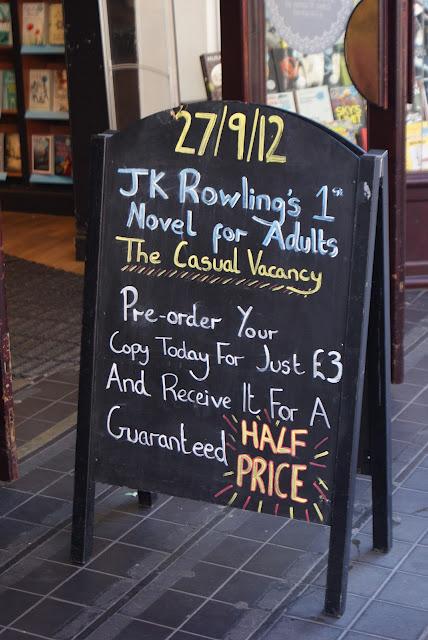 27/9/12
JK Rowling's 1st
Novel for Adults
The Casual Vacancy
Pre-order Your
Copy Today For Just £3
And Receive It For A
Guaranteed HALF
PRICE